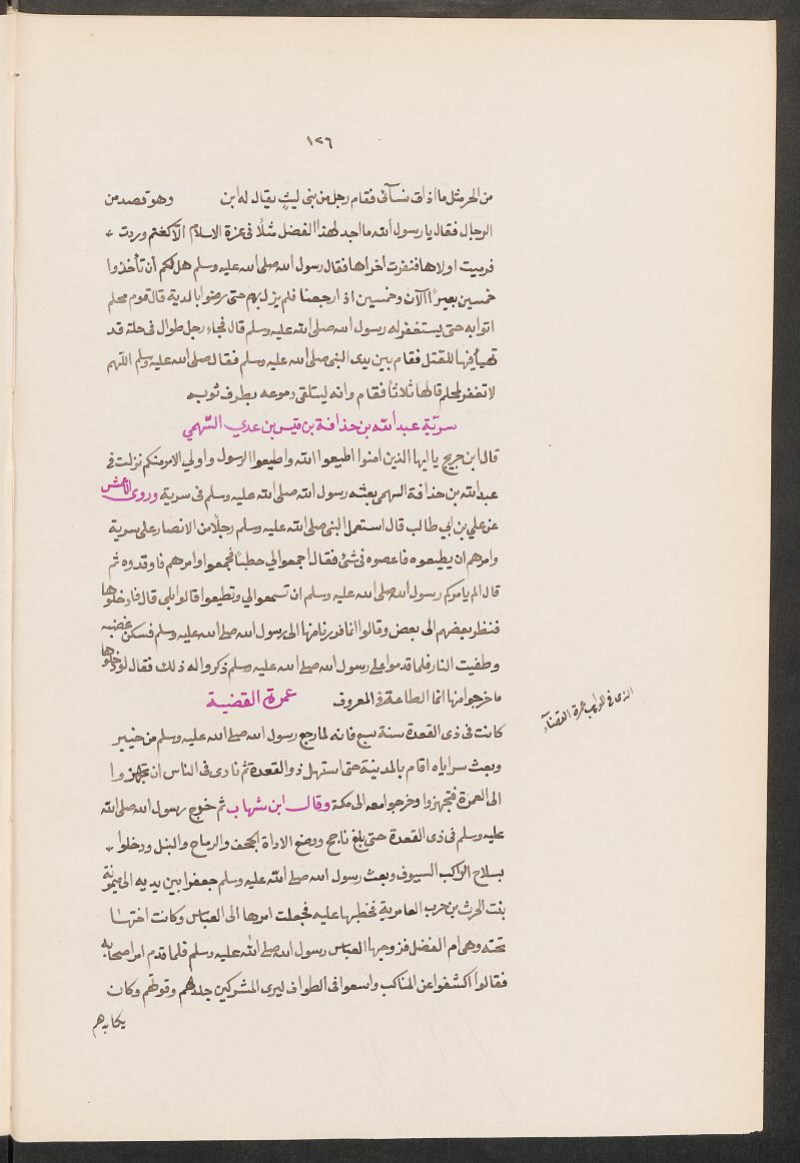 ١٢٦
من الحر مثل ما اذاق نسآئى فقام رجل من بنى ليث يقال له ابن وهو قصد من
الرجال فقال يا رسول الله ما اجد لهذا الفضل مثلًا فى غزة الاسلام الّا كغنم وردت
فرميت اولاها فنفرت اخراها فقال رسول الله صلى الله عليه وسلم هل لكم أن تأخذوا
خمسين بعيرًا الآن وخمسين اذ ارجعنا فلم يزل بهم حتى رضوا بالدية قال قوم محلم
اتوا به حتى يستغفر له رسول الله صلى الله عليه وسلم قال فجاء رجل طوال فى حلة قد
تهيأ فيها للقتل فقام بين يدى النبى صلى الله عليه وسلم فقال صلى الله عليه وسلم اللهم
لا تغفر لمحلم قالها ثلاثًا فقام وانه ليتلقى دموعه بطرف ثوبه
سرية عبد الله بن حذافة بن قيس بن عدي السّهمي
قال ابن جريج يا ايها الذين امنوا اطيعوا الله واطيعوا الرسول واولي الامر منكم نزلت فى
عبد الله بن حذافة السهمى بعثه رسول الله صلى الله عليه وسلم فى سرية وروى الاعمش
عن علي بن ابي طالب قال استعمل النبى صلى الله عليه وسلم رجلًا من الانصار على سرية
وامرهم ان يطيعوه فاعصوه فى شئ فقال اجمعوا لي حطبًا فجمعوا وامرهم فاوقدوه ثم
قال الم يامركم رسول الله صلى الله عليه وسلم ان تسمعوا لي وتطيعوا قالوا بلى قال فادخلوها
فنظر بعضهم الى بعض وقالوا انا فررنا منها الى رسول الله صلى الله عليه وسلم فسكن غضبه
وطفيت النار فلما قدموا على رسول الله صلى الله عليه وسلم ذكروا له ذلك فقال لو دخلوها
ما خرجوا منها انما الطاعة فى المعروف عمرة القضية
كانت فى ذى القعدة سنة سبع فانه لما رجع رسول الله صلى الله عليه وسلم من خيبر
وبعث سراياه اقام بالمدينة حتى استهل ذو القعدة ثم نادى فى الناس ان تجهزوا
الى العمرة فتجهزوا وخرجوا معه الى مكة وقال ابن شهاب ثم خرج رسول الله صلى الله
عليه وسلم فى ذى القعدة حتى بلغ ناجح ووضع الاداة الجحف والرماح والنبل ودخلوا
بسلاح الراكب السيوف وبعث رسول الله صلى الله عليه وسلم جعفرا بين يديه الى ميمونة
بنت الحرث بن حرب العامرية فخطبها عليه فجعلت امرها الى العباس وكانت اختها
تحته وهى ام الفضل فزوجها العباس رسول الله صلى الله عليه وسلم فلما قدم امر اصحابه
فقالوا اكشفوا عن المناكب واسعوا فى الطواف ليرى المشركين جلدهم وقوتهم وكان
يكابدهم
الذى فى عمرة القضاء